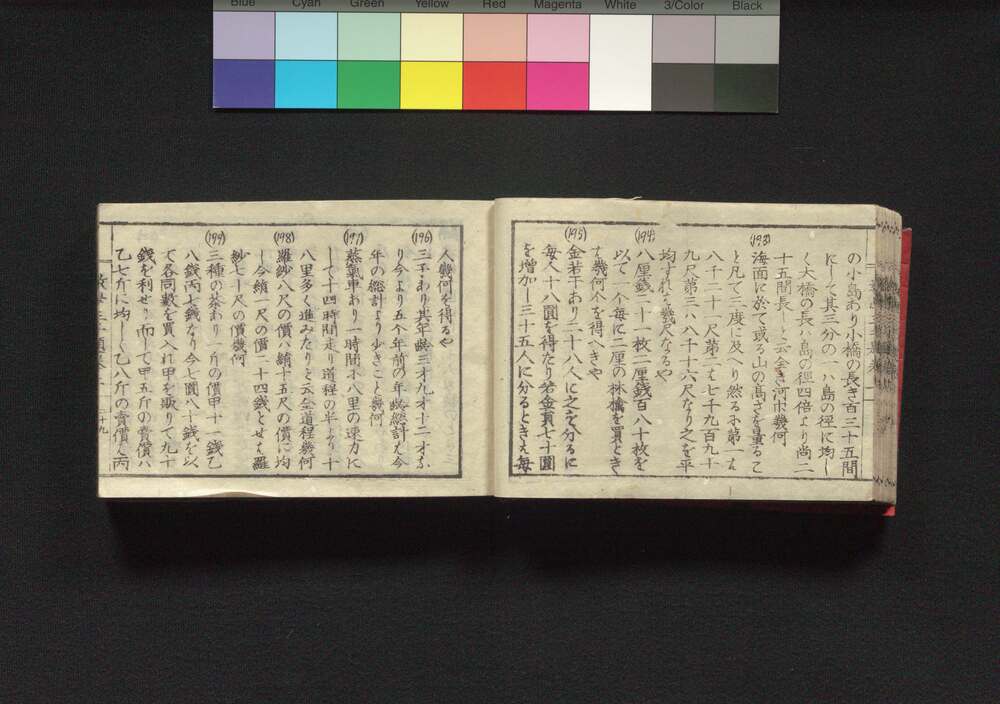 Blue Cyan Green Yellow Red Magenta White 3/Color Black
の小島あり小橋の長さ百三十五間
にして其三分の一ハ島の徑に均し
く大橋の長ハ島の徑四倍より尚二
十五間長しと云全き河巾幾何
(193)
海面に於て或る山の高さを量るこ
と凡て三度に及へり然るに第一は
八千二十一尺第二は七千九百九十
九尺第三ハ八千十六尺なり之を平
均すれは幾尺なるや
(194)
八厘錢二十一枚二厘錢百八十枚を
以て一个每に二厘の林檎を買ふとき
は幾何个を得へきや
(195)
金若干あり二十八人に之を分るに
每人十八圓を得たり若金員七十圓
を增加し三十五人に分るときは每
人幾何を得るや
(196)
三子あり其年齡三才九才十二才な
り今より五个年前の年齡總計は今
年の總計より少きこと幾何
(197)
蒸氣車あり一時間に八里の速力に
して十四時間走り道程の半より十
八里多く進みたりと云全道程幾何
(198)
羅紗八尺の價ハ絹十五尺の價に均
し今絹一尺の價二十四錢とせは羅
紗七十尺の價幾何
(199)
三種の茶あり一斤の價甲十一錢乙
八錢丙七錢なり今七圓八十錢を以
て各同數を買入れ甲を販りて九十
錢を利せり而して甲五斤の賣價ハ
乙七斤に均しく乙八斤の賣價は丙
十九